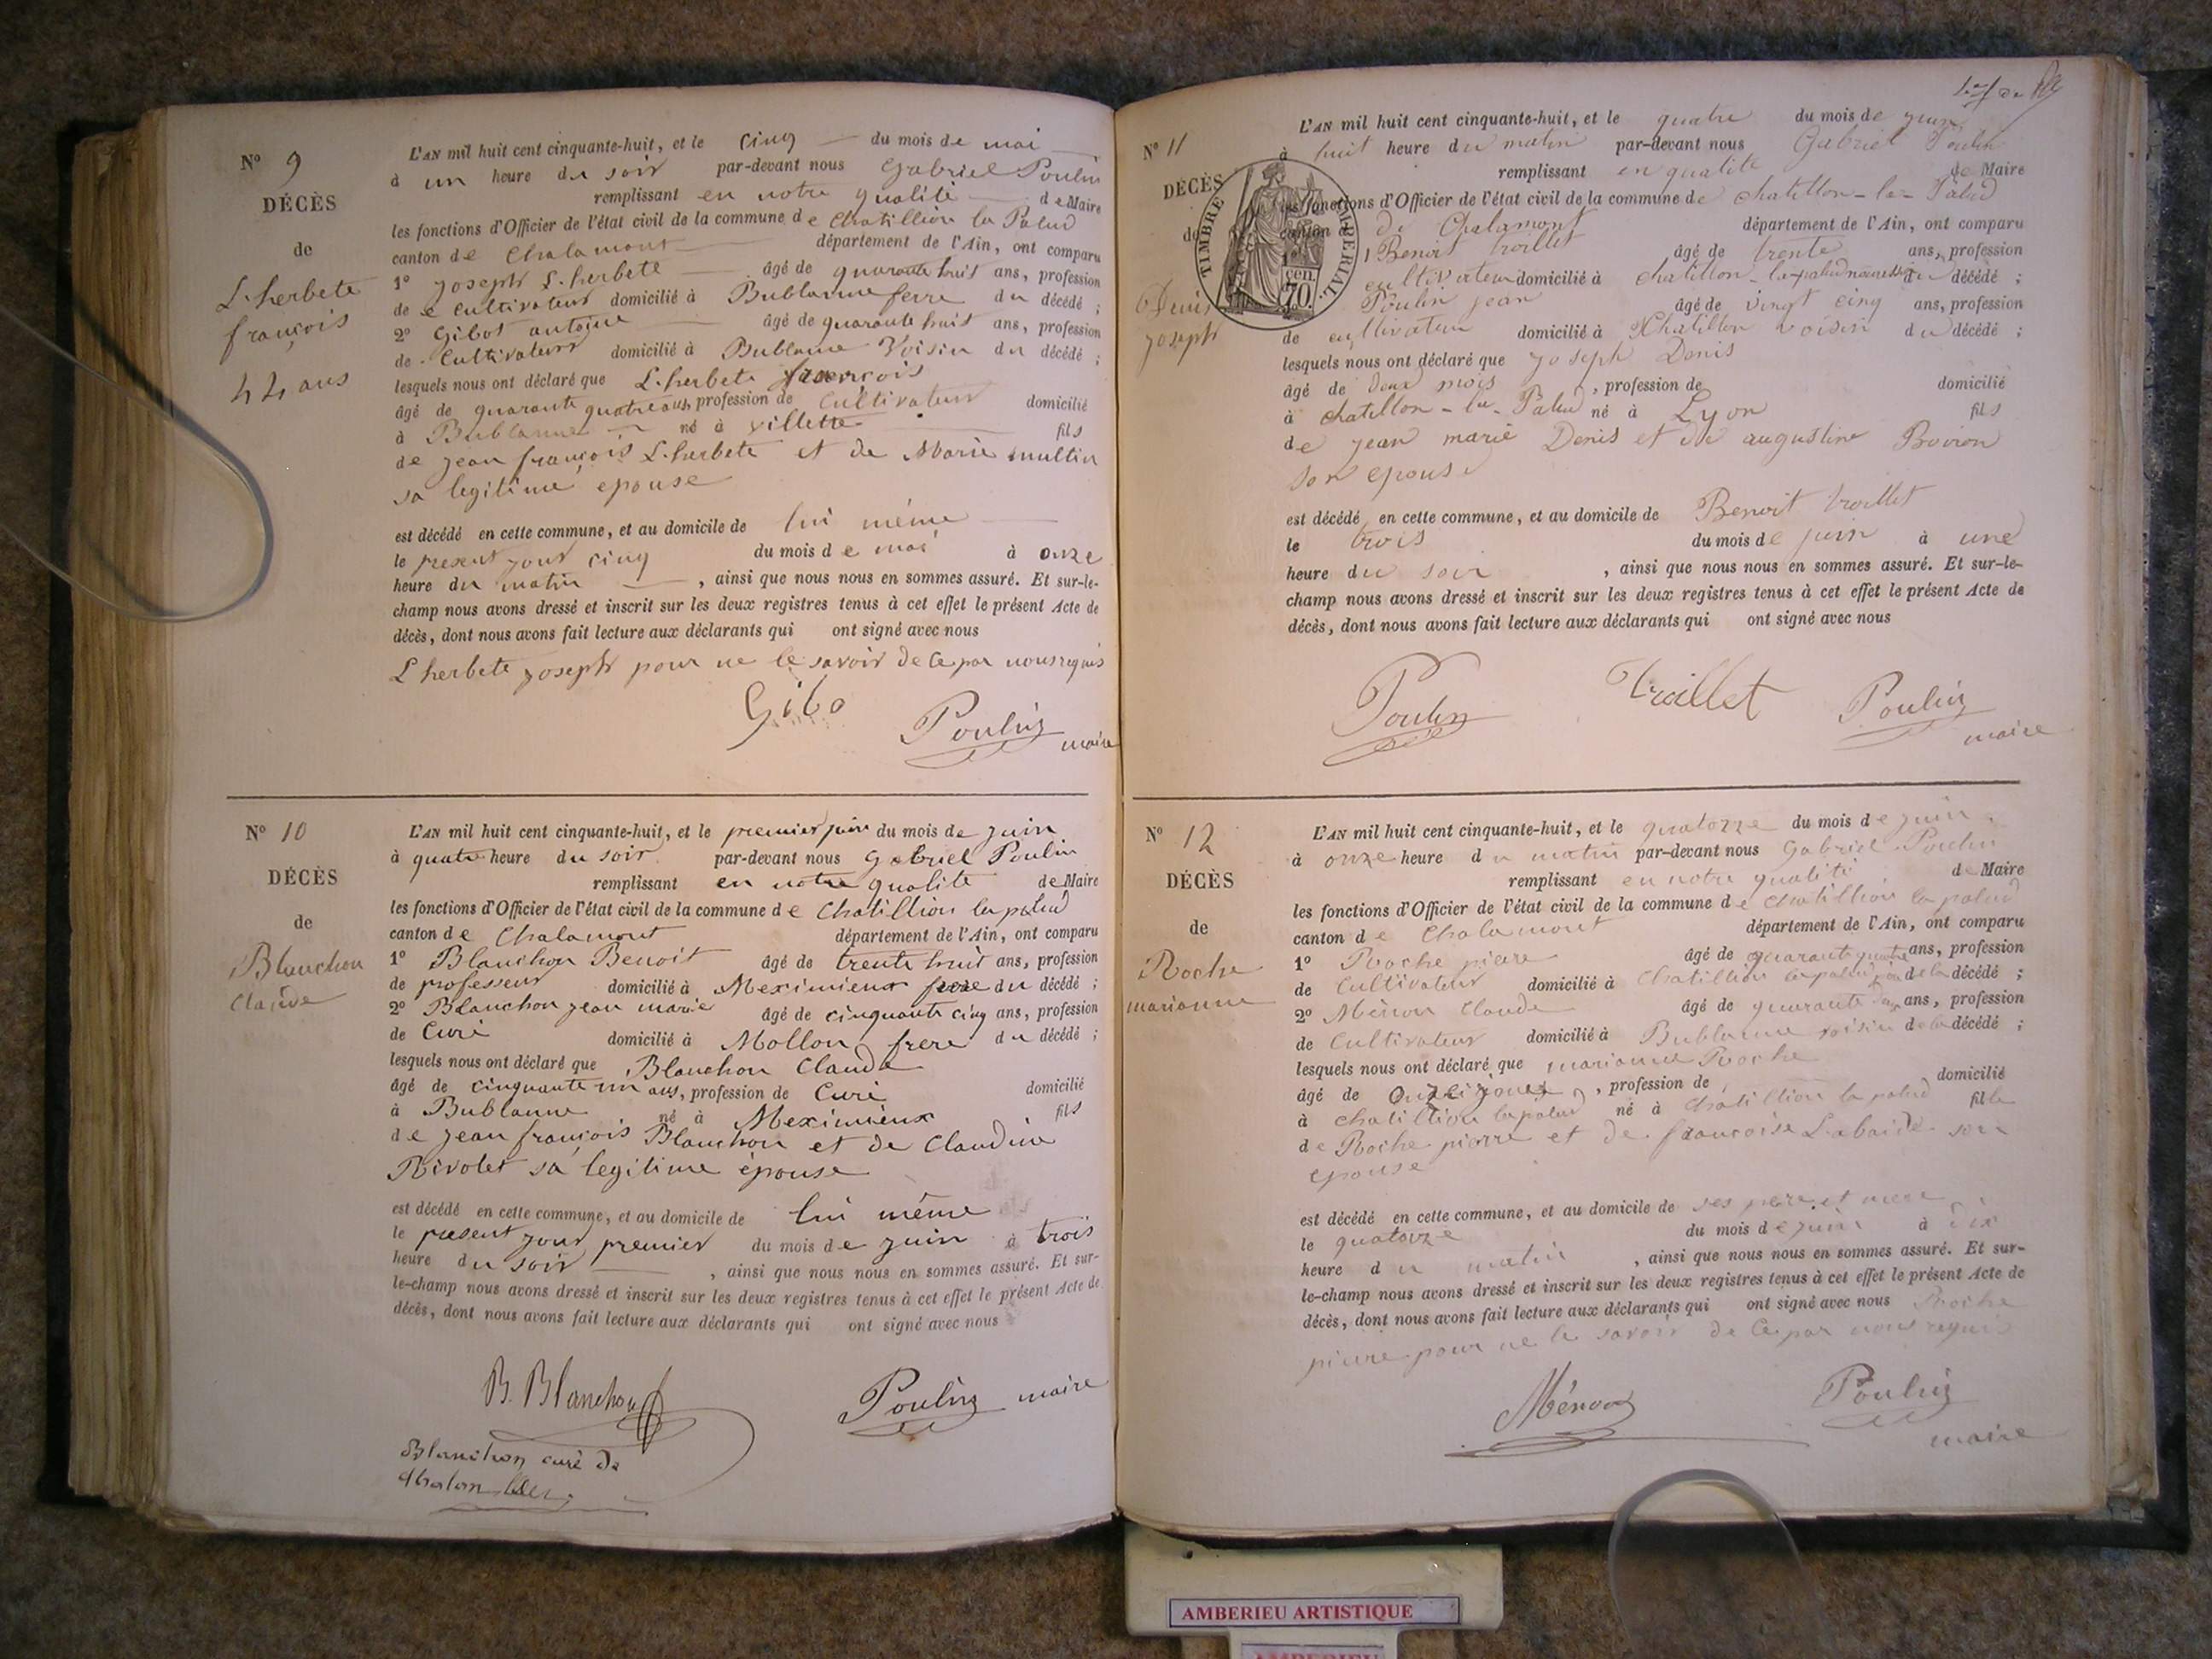 N° 9
DÉCÈS
de
L'herbete
françois
44 ans
L'AN mil huit cent cinquante-huit, et le cinq du mois de mai
à un heure du soir par-devant nous Gabriel Poulin
remplissant en notre qualité de Maire
les fonctions d'Officier de l'état civil de la commune de Chatillion la Palud
canton de Chalamont département de l'Ain, ont comparu
1° joseph L'herbete âgé de quarante huit ans, profession
de cultivateur domicilié à Bublanne frere du décédé ;
2° Gibot antoine âgé de quarante huit ans, profession
de Cultivateur domicilié à Bublanne Voisin du décédé ;
lesquels nous ont déclaré que L'herbete françois
âgé de quarante quatre ans, profession de Cultivateur domicilié
à Bublanne né à villette fils
de jean françois L'herbete et de Marie multin
sa legitime epouse
est décédé en cette commune, et au domicile de lui même
le present jour cinq du mois de mai à onze
heure du matin , ainsi que nous nous en sommes assuré. Et sur-le-
champ nous avons dressé et inscrit sur les deux registres tenus à cet effet le présent Acte de
décès, dont nous avons fait lecture aux déclarants qui ont signé avec nous
L'herbete joseph pour ne le savoir de ce par nous requis
Gibo
Poulin
maire
N° 10
DÉCÈS
de
Blanchon
Claude
L'AN mil huit cent cinquante-huit, et le premier jour du mois de juin
à quatre heure du soir par-devant nous Gabriel Poulin
remplissant en notre qualité de Maire
les fonctions d'Officier de l'état civil de la commune de Chatillion la palud
canton de Chalamont département de l'Ain, ont comparu
1° Blanchon Benoit âgé de trente huit ans, profession
de professeur domicilié à Meximieux frere du décédé ;
2° Blanchon jean marie âgé de cinquante cinq ans, profession
de Curé domicilié à Mollon frere du décédé ;
lesquels nous ont déclaré que Blanchon Claude
âgé de cinquante un ans, profession de Curé domicilié
à Bublanne né à Meximieux fils
de jean françois Blanchon et de Claudine
Rivolet sa legitime épouse
est décédé en cette commune, et au domicile de lui même
le present jour premier du mois de juin à trois
heure du soir , ainsi que nous nous en sommes assuré. Et sur-
le-champ nous avons dressé et inscrit sur les deux registres tenus à cet effet le présent Acte de
décès, dont nous avons fait lecture aux déclarants qui ont signé avec nous
B. Blanchon
Poulin maire
Blanchon curé de
N° 11
DÉCÈS
de
Denis
joseph
TIMBRE IMPÉRIAL
L'AN mil huit cent cinquante-huit, et le quatre du mois de juin
à huit heure du matin par-devant nous Gabriel Poulin
remplissant en qualité de Maire
les fonctions d'Officier de l'état civil de la commune de chatillon-la-Palud
canton de Chalamont département de l'Ain, ont comparu
1 Benoit troillet âgé de trente ans, profession
cultivateur domicilié à chatillon-la-palud du décédé ;
Poulin jean âgé de vingt cinq ans, profession
de cultivateur domicilié à Chatillon voisin du décédé ;
lesquels nous ont déclaré que joseph Denis
âgé de deux mois , profession de domicilié
à chatillon-la-Palud né à Lyon fils
de jean marie Denis et de augustine Boiron
son epouse
est décédé en cette commune, et au domicile de Benoit troillet
le trois du mois de juin à une
heure du soir , ainsi que nous nous en sommes assuré. Et sur-le-
champ nous avons dressé et inscrit sur les deux registres tenus à cet effet le présent Acte de
décès, dont nous avons fait lecture aux déclarants qui ont signé avec nous
Poulin Troillet Poulin
maire
N° 12
DÉCÈS
de
Roche
marianne
L'AN mil huit cent cinquante-huit, et le quatorze du mois de juin
à onze heure du matin par-devant nous Gabriel Poulin
remplissant en notre qualité de Maire
les fonctions d'Officier de l'état civil de la commune de Chatillion la palud
canton de Chalamont département de l'Ain, ont comparu
1° Roche piere âgé de quarante quatre ans, profession
de Cultivateur domicilié à Chatillion la palud de la décédé ;
2° Menon Claude âgé de quarante ans, profession
de Cultivateur domicilié à Bublanne voisin de la décédé ;
lesquels nous ont déclaré que marianne Roche
âgé de onze jours , profession de domicilié
à chatillion la palud né à Chatillion la palud fille
de Roche pierre et de françoise Labaide son
epouse
est décédé en cette commune, et au domicile de ses pere et mere
le quatorze du mois de juin à dix
heure du matin , ainsi que nous nous en sommes assuré. Et sur-
le-champ nous avons dressé et inscrit sur les deux registres tenus à cet effet le présent Acte de
décès, dont nous avons fait lecture aux déclarants qui ont signé avec nous Roche
pierre pour ne le savoir de ce par nous requis
Ménon
Poulin
maire
AMBERIEU ARTISTIQUE
AMBERIEU